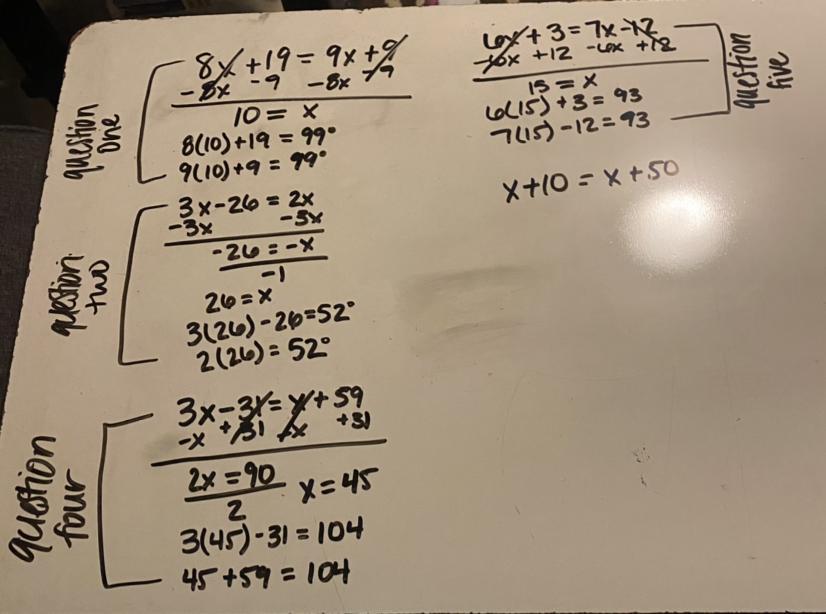 question one
8x + 19 = 9x + 9
-8x -9 -8x -9
10 = x
8(10) + 19 = 99°
9(10) + 9 = 99°
question two
3x - 26 = 2x
-3x -3x
-26 = -x
-1
26 = x
3(26) - 26 = 52°
2(26) = 52°
question four
3x - 31 = x + 59
-x + 31 -x +31
2x = 90
2
x = 45
3(45) - 31 = 104
45 + 59 = 104
6x + 3 = 7x - 12
-6x +12 -6x +12
15 = x
6(15) + 3 = 93
7(15) - 12 = 93
question five
x + 10 = x + 50